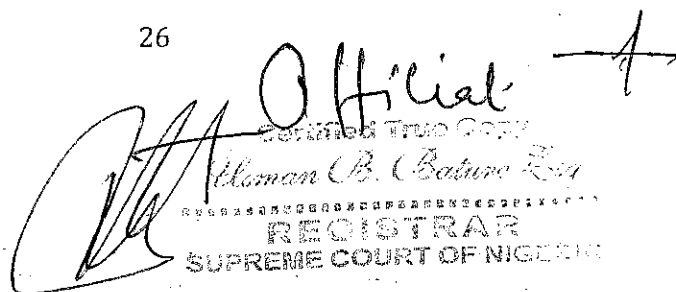 26
Official
Certified True Copy
Usman B. Bature Esq
REGISTRAR
SUPREME COURT OF NIGERIA